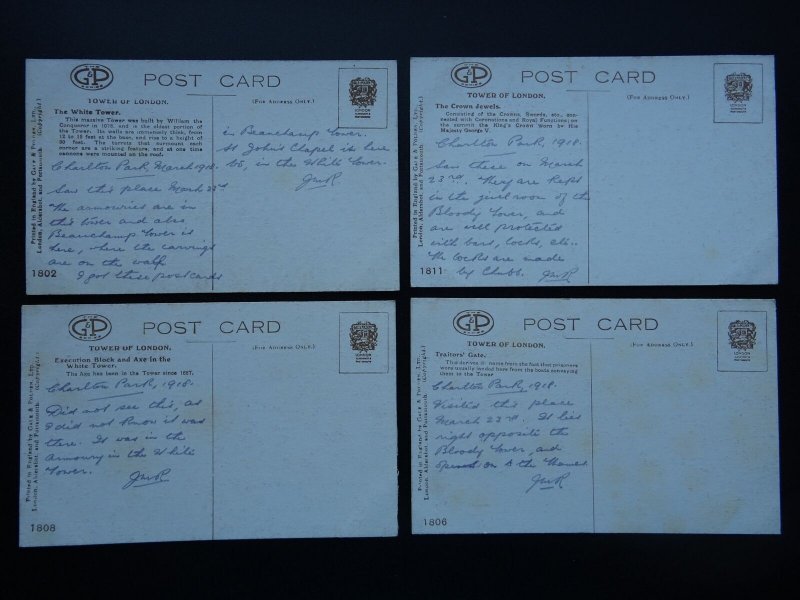 THE
G&P
SERIES
POST CARD
TOWER OF LONDON.
(FOR ADDRESS ONLY.)
The White Tower.
This massive Tower was built by William the
Conqueror in 1078, and is the oldest portion of
the Tower. Its walls are immensely thick, from
12 to 15 feet at the base, and rise to a height of
90 feet. The turrets that surmount each
corner are a striking feature, and at one time
cannons were mounted on the roof.
Charlton Park, March 1918.
Saw this place March 23rd
The armouries are in
this tower and also
Beauchamp Tower is
here, where the carvings
are on the walls.
I got these postcards
in Beauchamp Tower.
St John's Chapel is here
too, in the White Tower.
JWR
Printed in England by Gale & Polden, Ltd.,
London, Aldershot, and Portsmouth. (Copyright.)
LONDON
1802
THE
G&P
SERIES
POST CARD
TOWER OF LONDON.
(FOR ADDRESS ONLY.)
The Crown Jewels.
Consisting of the Crowns, Swords, etc., connected with Coronations and Royal Functions; on
the summit the King's Crown worn by His
Majesty George V.
Charlton Park, 1918.
Saw these on March
23rd. They are kept
in the jewel room of the
Bloody Tower, and
are well protected
with bars, locks, etc.
The locks are made
by Chubb. JWR
Printed in England by Gale & Polden, Ltd.,
London, Aldershot, and Portsmouth. (Copyright.)
LONDON
1811
THE
G&P
SERIES
POST CARD
TOWER OF LONDON.
(FOR ADDRESS ONLY.)
Execution Block and Axe in the
White Tower.
The Axe has been in the Tower since 1687.
Charlton Park, 1918.
Did not see this, as
I did not know it was
there. It was in the
armoury in the White
Tower.
JWR
Printed in England by Gale & Polden, Ltd.,
London, Aldershot, and Portsmouth. (Copyright.)
LONDON
1808
THE
G&P
SERIES
POST CARD
TOWER OF LONDON.
(FOR ADDRESS ONLY.)
Traitors' Gate.
This derives its name from the fact that prisoners
were usually landed here from the boats conveying
them to the Tower
Charlton Park, 1918.
Visited this place
March 23rd. It lies
right opposite the
Bloody Tower, and
opens on to the Thames.
JWR
Printed in England by Gale & Polden, Ltd.,
London, Aldershot, and Portsmouth. (Copyright.)
LONDON
1806